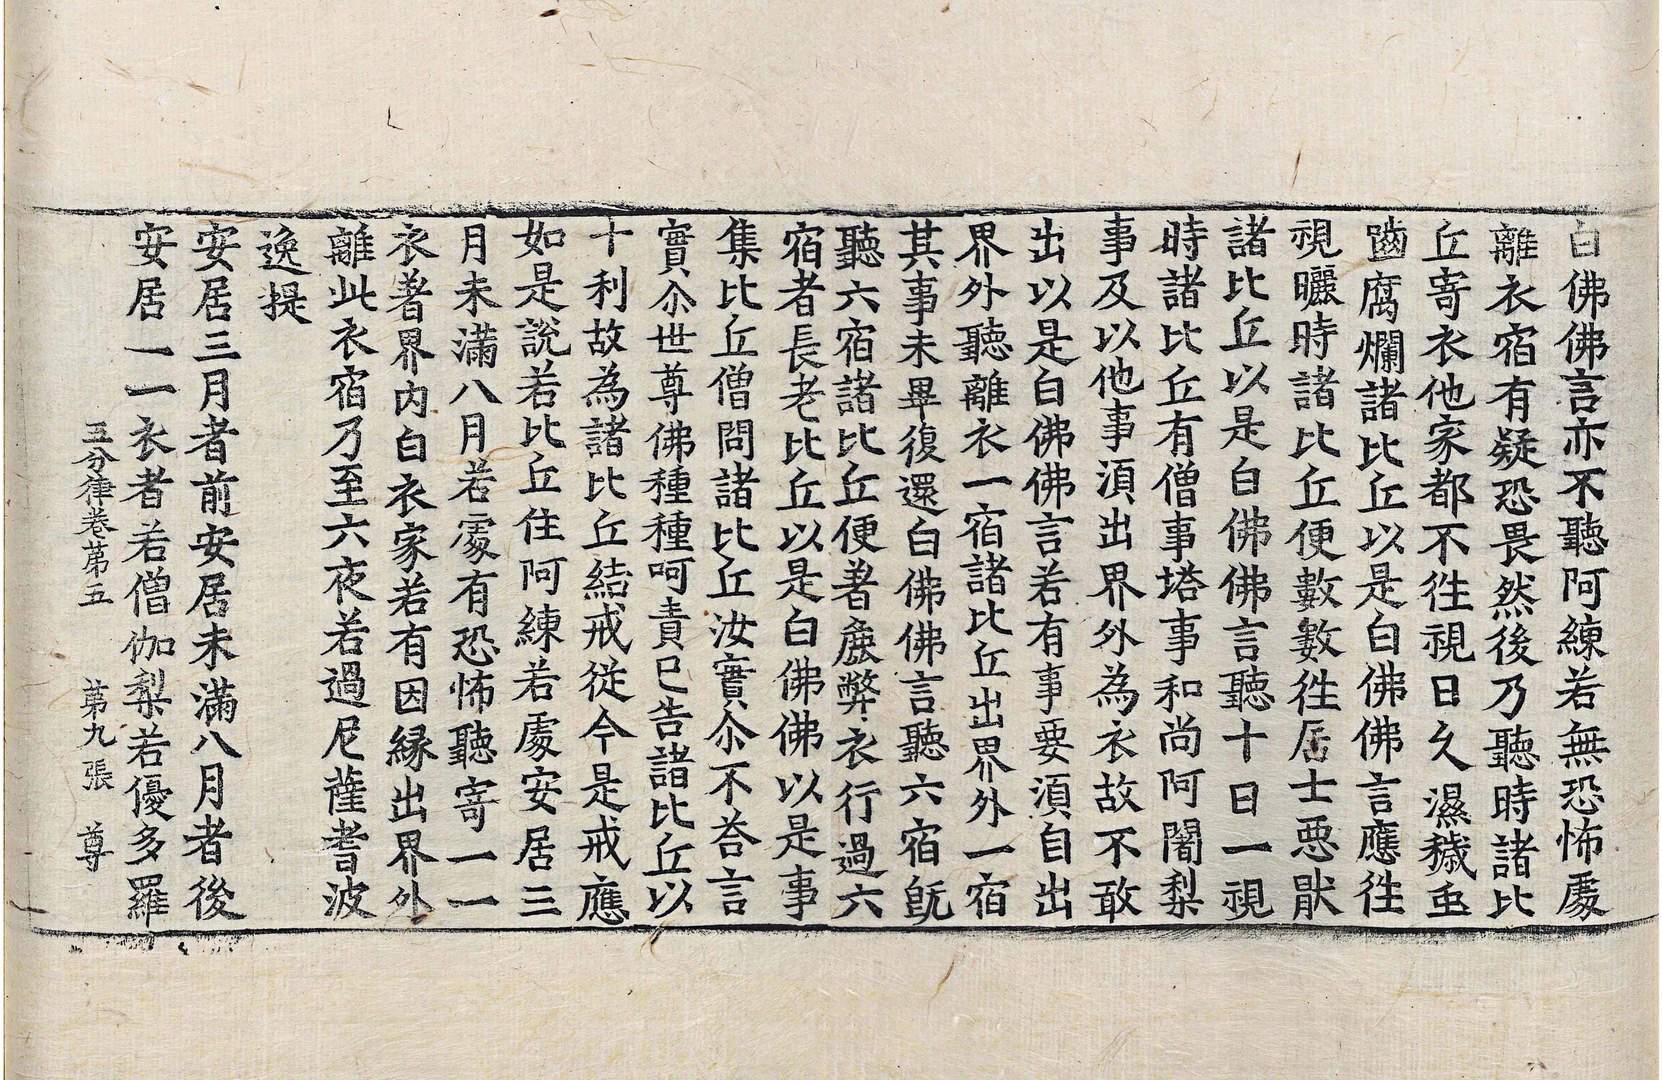 白佛佛言亦不聽阿練若無恐怖處
離衣宿有疑恐畏然後乃聽時諸比
丘寄衣他家都不徃視日久濕穢虫
齧腐爛諸比丘以是白佛佛言應徃
視曬時諸比丘便數數徃居士惡猒
諸比丘以是白佛佛言聽十日一視
時諸比丘有僧事塔事和尚阿闍梨
事及以他事湏出界外為衣故不敢
出以是白佛佛言若有事要湏自出
界外聽離衣一宿諸比丘出界外一宿
其事未畢復還白佛佛言聽六宿旣
聽六宿諸比丘便著麁弊衣行過六
宿者長老比丘以是白佛佛以是事
集比丘僧問諸比丘汝實尒不荅言
實尒世尊佛種種呵責已告諸比丘以
十利故為諸比丘結戒從今是戒應
如是說若比丘住阿練若處安居三
月未滿八月若處有恐怖聽寄一一
衣著界内白衣家若有因緣出界外
離此衣宿乃至六夜若過尼薩耆波
逸提
安居三月者前安居未滿八月者後
安居一一衣者若僧伽梨若優多羅
五分律卷苐五 苐九張 尊